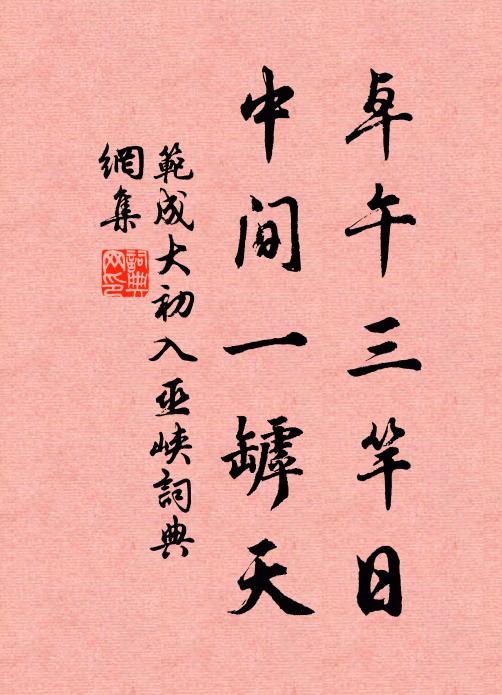 卓午三竿日
中间一罅天
範成大初入巫峽詞典
網集
詞典
网印